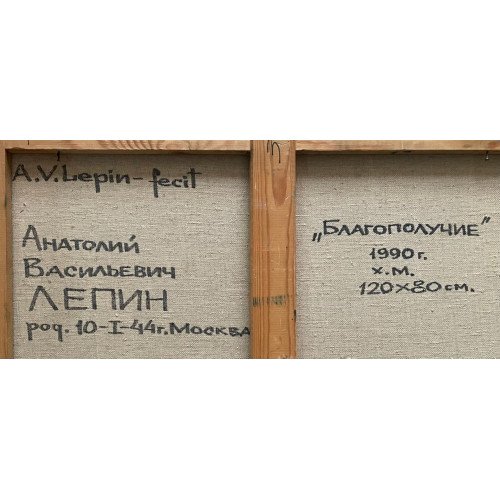 A.V.Lepin-fecit
Анатолий
Васильевич
ЛЕПИН
род. 10-I-44г. Москва
„Благополучие"
1990 г.
х.м.
120×80 см.